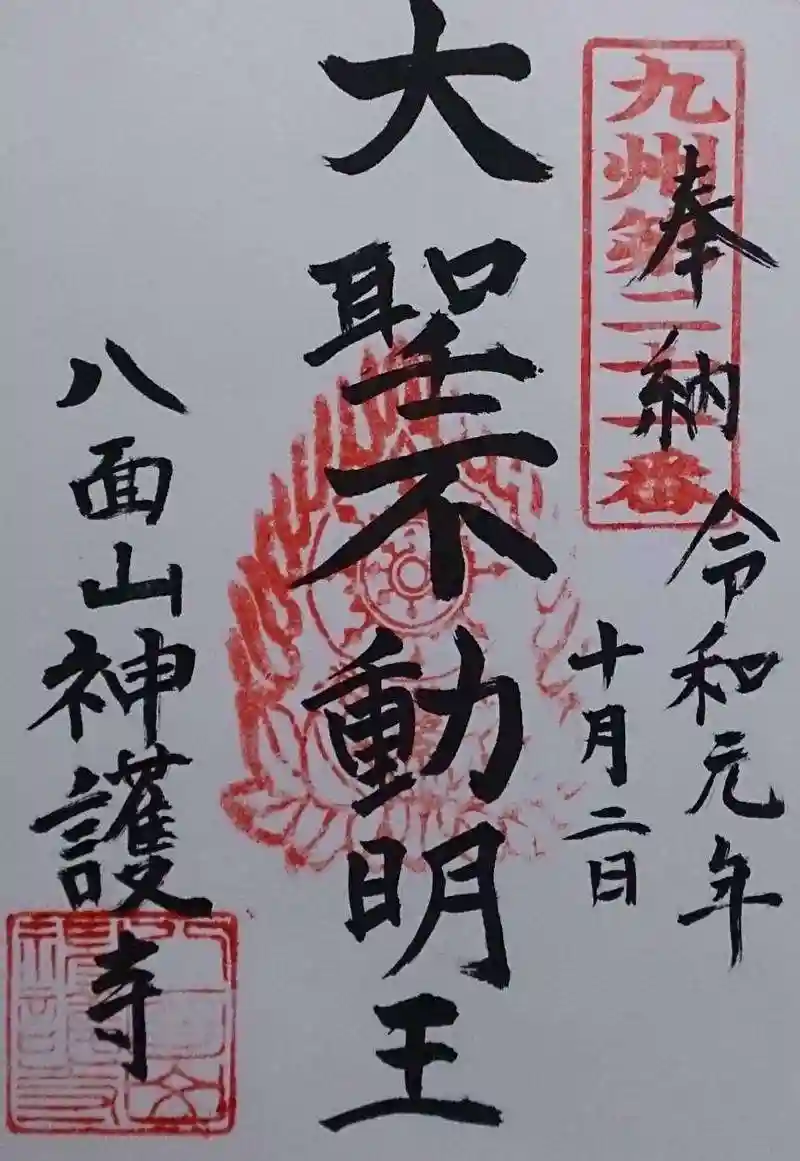 九州第二十一番
奉納
令和元年
十月二日
大聖不動明王
八面山神護寺